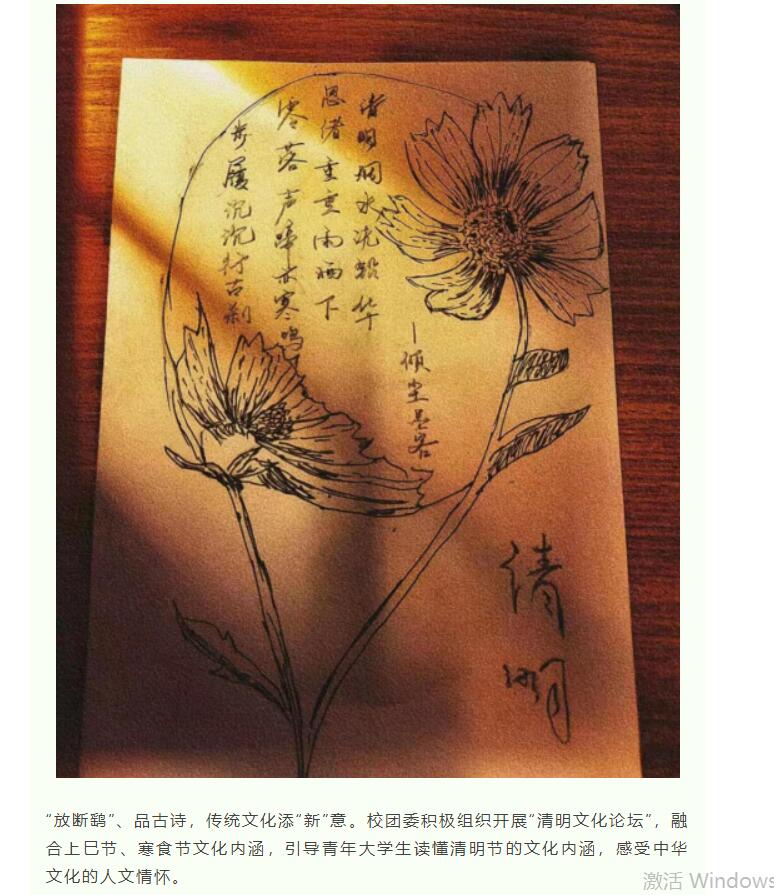 清明烟水洗铅华
思绪重重雨洒下
零落声啼亦寒鸣
步履沉沉行古刹
—倾尘墨客
清明
“放断鹞”、品古诗，传统文化添“新”意。校团委积极组织开展“清明文化论坛”，融
合上巳节、寒食节文化内涵，引导青年大学生读懂清明节的文化内涵，感受中华
文化的人文情怀。
激活 Windows